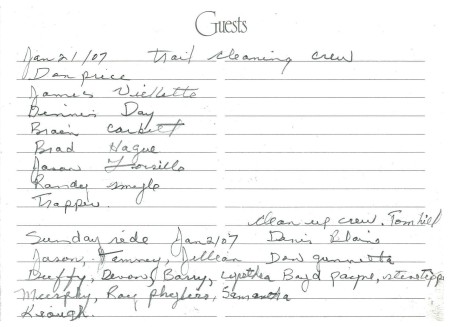 Guests
Jan 21/07 trail cleaning crew
Dan price
James Viellette
Dennis Day
Brain Corbett
Brad Hague
Jason
Randy smyle
Trapper
clean up crew. Tom
Sunday ride Jan 2/07 Denis Blais
Jason, Tammey, Jillean Dan
Buffy, Devons, Barry, Boyd payne,
Murphy, Ray Samantha
Keough.